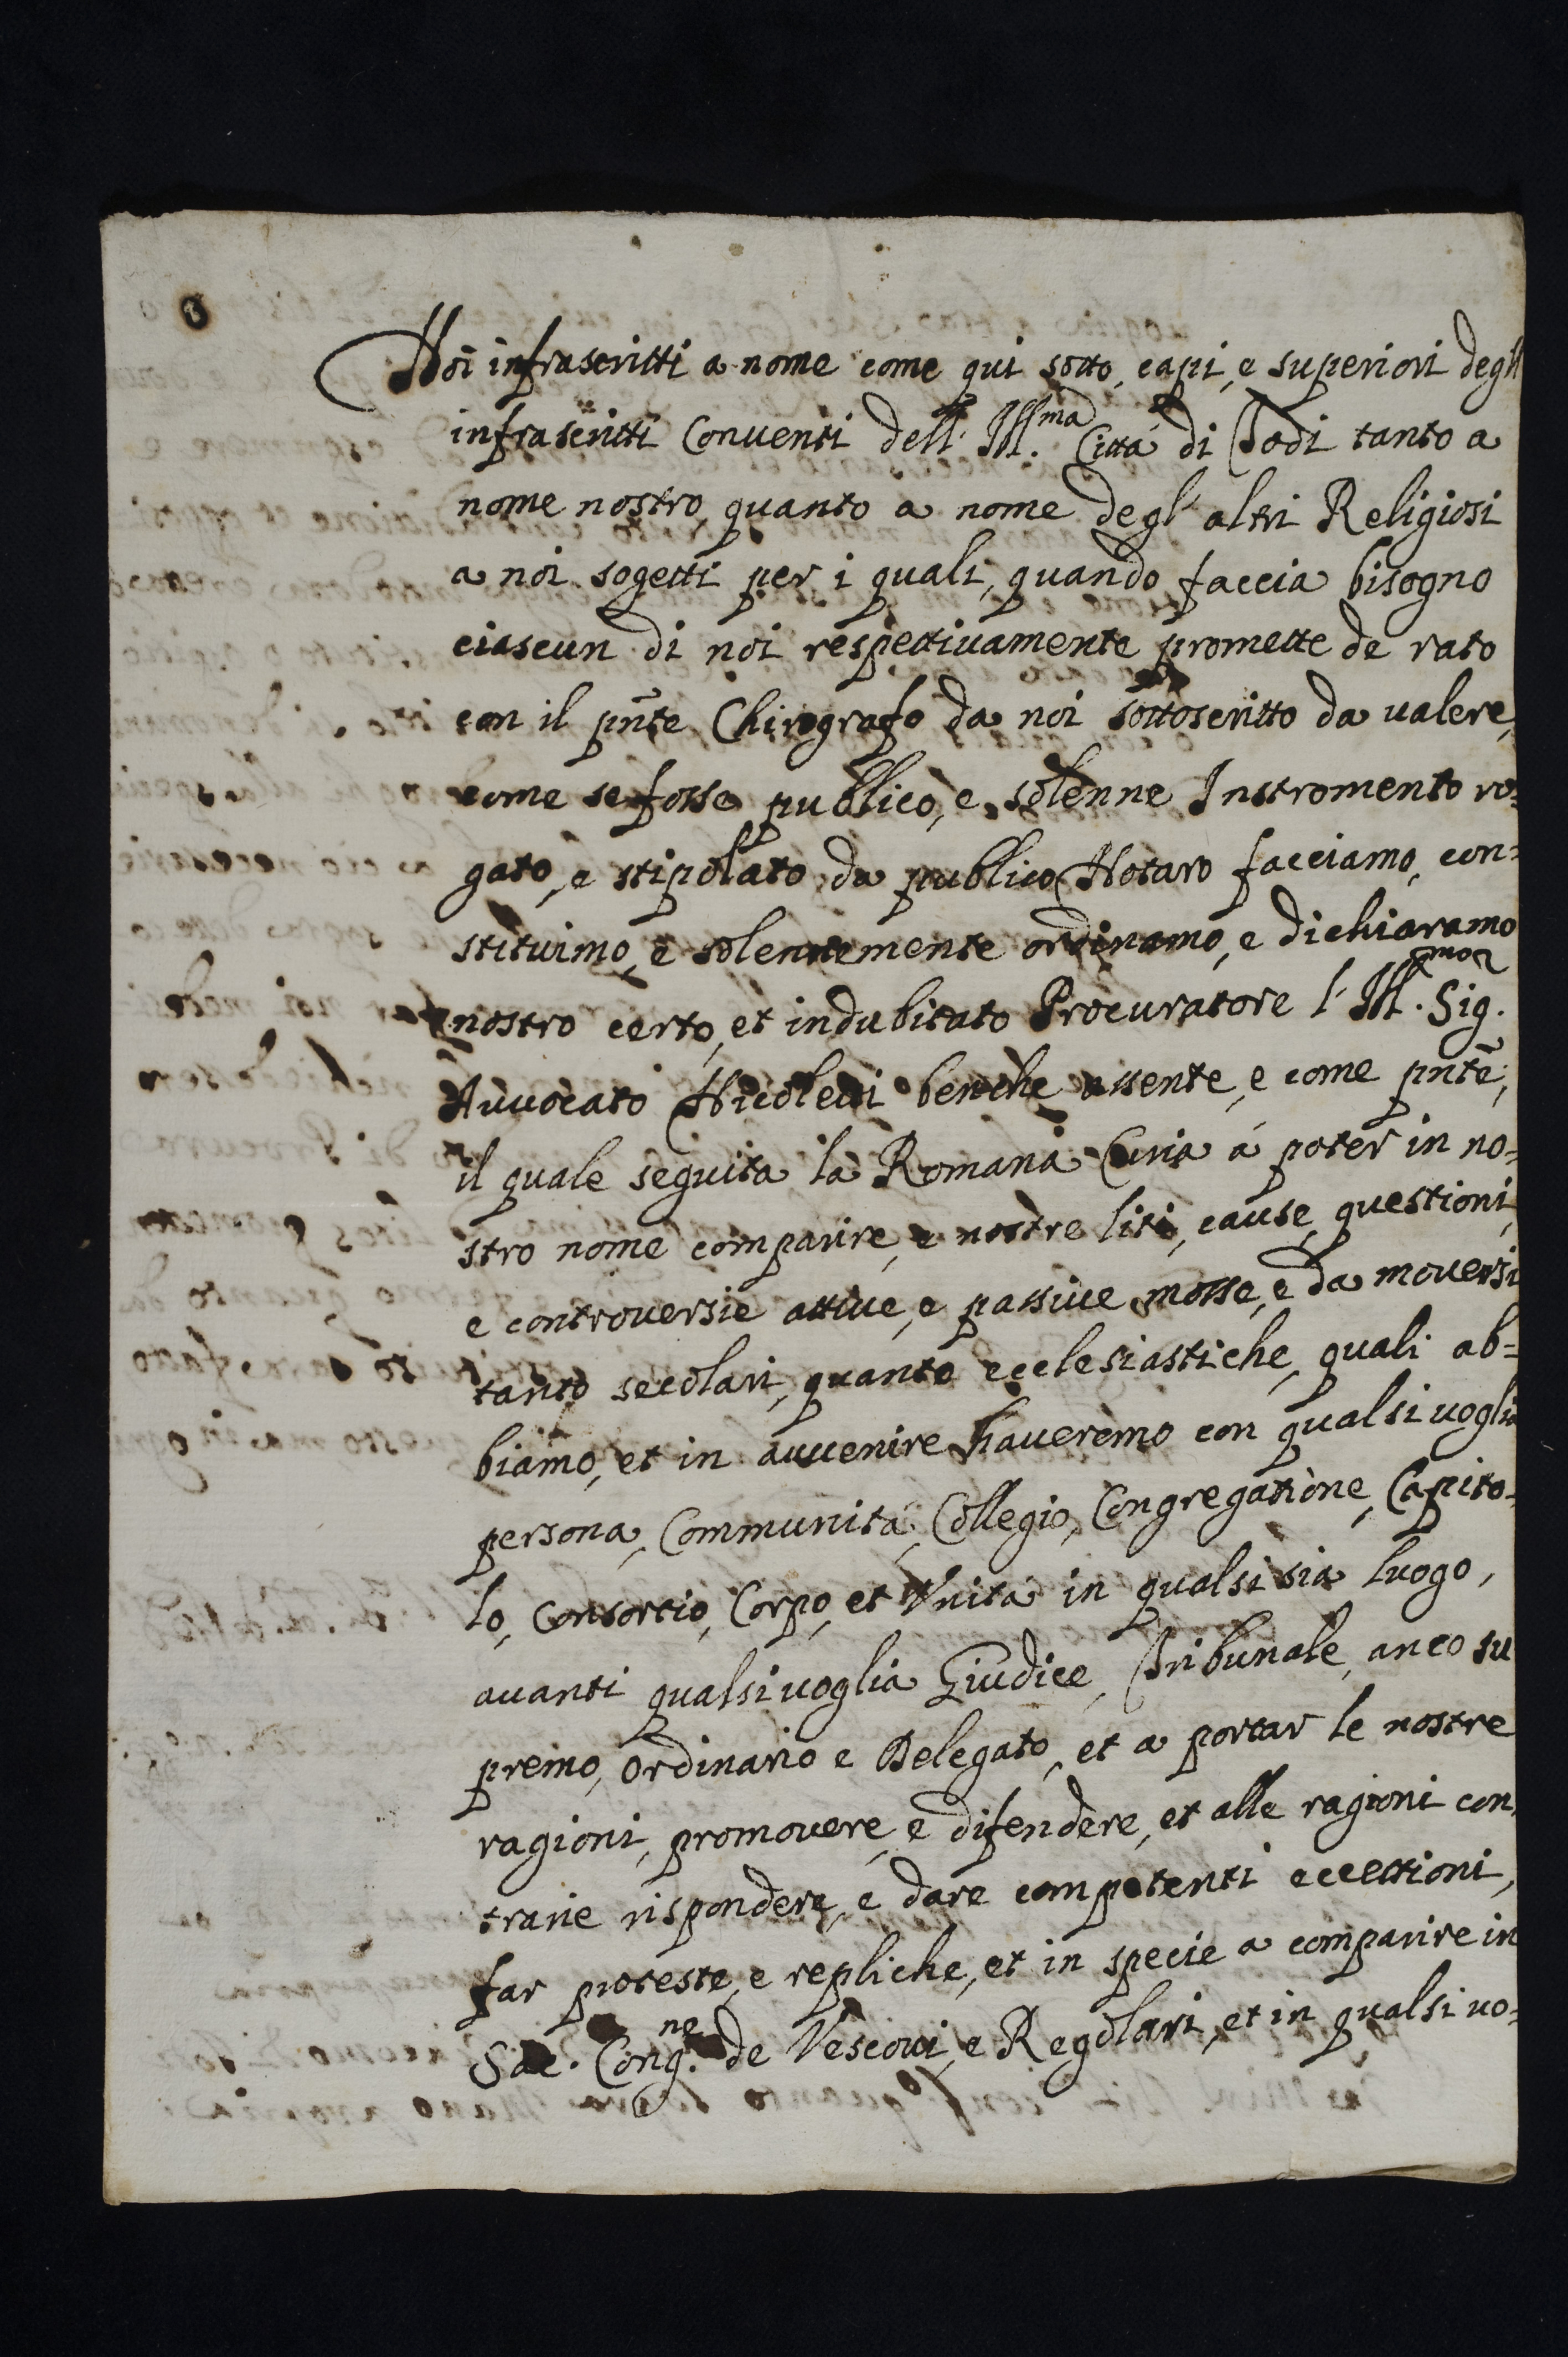 Noi infrascritti a nome come qui sotto, capi, e superiori degl'
infrascritti Conventi dell' Ill.ma Città di Todi tanto a
nome nostro, quanto a nome degl' altri Religiosi
a noi sogetti per i quali, quando faccia bisogno
ciascun di noi respettivamente promette de rato
con il pnte Chirografo da noi sottoscritto da valere,
come se fosse publico, e solenne Instromento ro=
gato, e stipolato da publico Notaro facciamo, con=
stituimo, e solennemente ordinamo, e dichiaramo
nostro certo, et indubitato Procuratore l' Ill.mo Sig.r
Avvocato Nicoletti benche assente, e come pnte,
il quale seguita la Romana Curia à poter in no=
stro nome comparire, e nostre liti, cause, questioni,
e controversie attive, e passive mosse, e da moversi
tanto secolari, quanto ecclesiastiche, quali ab=
biamo, et in avvenire haveremo con qualsivoglia
persona, Communità, Collegio, Congregatione, Capito=
lo, Consortio, Corpo, et Vnità in qualsisia luogo,
avanti qualsivoglia Giudice, Tribunale, anco su
premo, Ordinario e Delegato, et a portar le nostre
ragioni, promovere, e difendere, et alle ragioni con,
trarie rispondere, e dare competenti eccettioni,
far proteste, e repliche, et in specie a comparire in
Sac. Cong.ne de Vescovi, e Regolari, et in qualsivo=